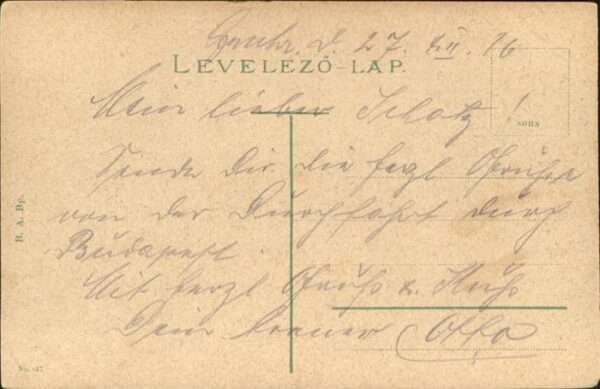 d. 27. XII. 16
LEVELEZŐ-LAP.
Mein lieber Schatz!
Sende Dir die herzl Grüsse
von der Durchfahrt durch
Budapest.
Mit herzl Gruß & Kuß
Dein treuer Otto
B. A. Bp.